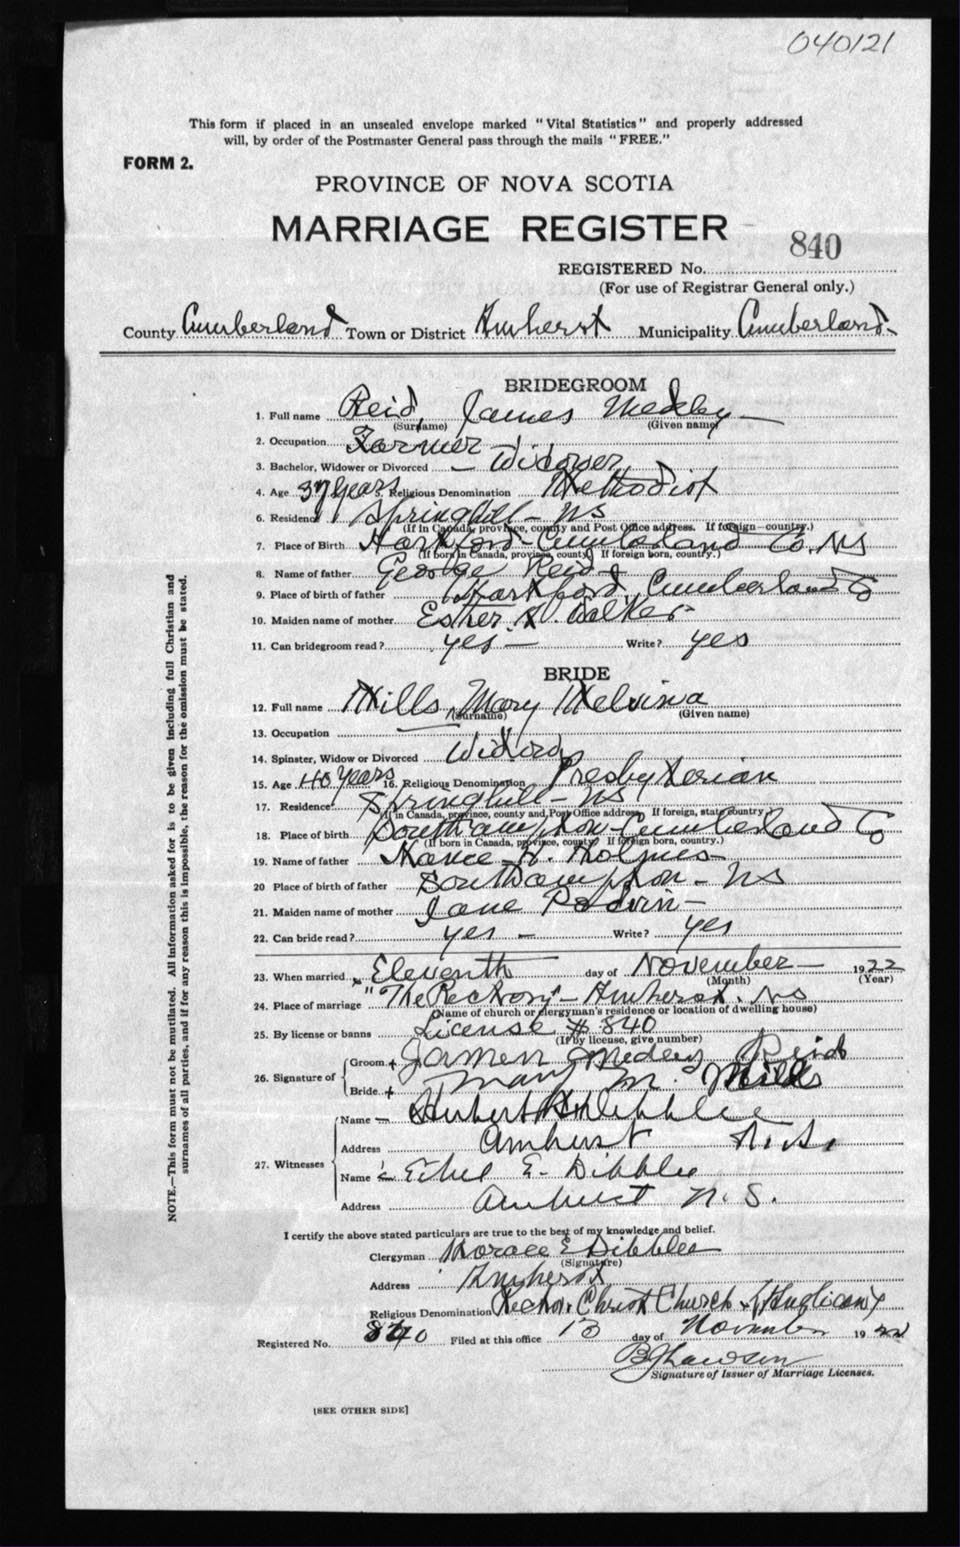 040121
This form if placed in an unsealed envelope marked "Vital Statistics" and properly addressed
will, by order of the Postmaster General pass through the mails "FREE."
FORM 2.
PROVINCE OF NOVA SCOTIA
MARRIAGE REGISTER
840
REGISTERED No.
(For use of Registrar General only.)
County Cumberland Town or District Amherst Municipality Cumberland
BRIDEGROOM
1. Full name Reid, James Medley
(Surname) (Given name)
2. Occupation Farmer
3. Bachelor, Widower or Divorced — Widower
4. Age 37 years 5. Religious Denomination Methodist
6. Residence Springhill - NS
(If in Canada, province, county and Post Office address. If foreign—country.)
7. Place of Birth Harkford - Cumberland Co. NS
(If born in Canada, province, county. If foreign born, country.)
8. Name of father George Reid
9. Place of birth of father Harkford, Cumberland Co
10. Maiden name of mother Esther Walker
11. Can bridegroom read? yes — Write? yes
BRIDE
12. Full name Mills, Mary Melvina
(Surname) (Given name)
13. Occupation
14. Spinster, Widow or Divorced Widow
15. Age 40 Years 16. Religious Denomination Presbyterian
17. Residence Springhill - NS
(If in Canada, province, county and Post Office address. If foreign, state country.)
18. Place of birth Southampton - Cumberland Co
(If born in Canada, province, county. If foreign born, country.)
19. Name of father H. Holmes
20 Place of birth of father Southampton - NS
21. Maiden name of mother Jane
22. Can bride read? yes — Write? yes
23. When married Eleventh day of November — 1922
(Month) (Year)
24. Place of marriage "The Rectory" - Amherst. NS
(Name of church or clergyman's residence or location of dwelling house)
25. By license or banns License # 840
(If by license, give number)
26. Signature of
Groom + Medley Reid
Bride. + Mary M. Mills
27. Witnesses
Name — Dibblee
Address Amherst N.S.
Name Ethel E. Dibblee
Address Amherst N.S.
I certify the above stated particulars are true to the best of my knowledge and belief.
Clergyman Horace E Dibblee
(Signature)
Address Amherst
Religious Denomination Rector Christ Church (Anglican)
Registered No. 840 Filed at this office 13 day of November 1922
Signature of Issuer of Marriage Licenses.
[SEE OTHER SIDE]
NOTE.—This form must not be mutilated. All information asked for is to be given including full Christian and
surnames of all parties, and if for any reason this is impossible, the reason for the omission must be stated.